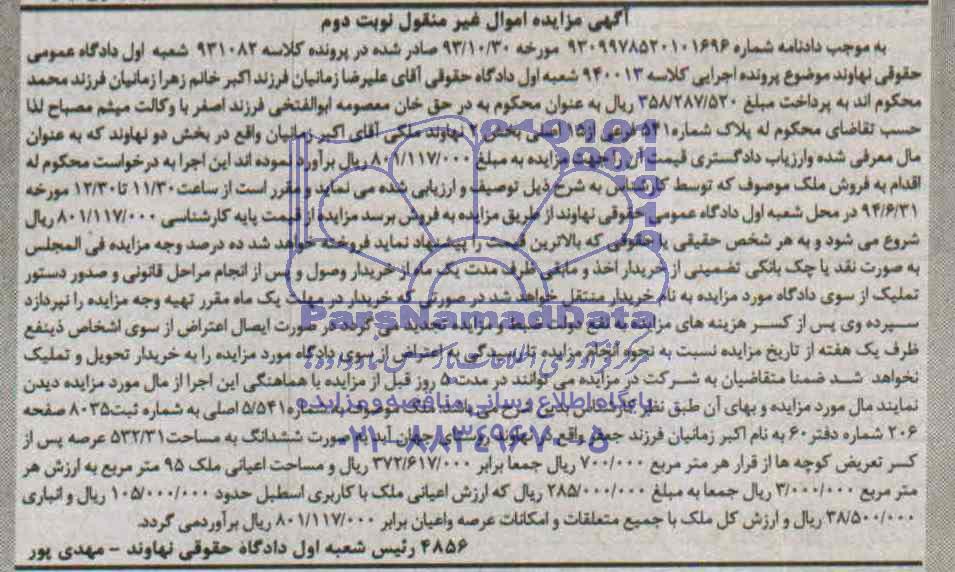 آگهی مزایده اموال غیر منقول نوبت دوم
به موجب دادنامه شماره ۹۳۰۹۹۷۸۵۲۰۱۰۱۶۹۶ مورخه ۹۳/۱۰/۳۰ صادر شده در پرونده کلاسه ۹۳۱۰۸۲ شعبه اول دادگاه عمومی
حقوقی نهاوند موضوع پرونده اجرایی کلاسه ۹۴۰۰۱۳ شعبه اول دادگاه حقوقی آقای علیرضا زمانیان فرزند اکبر خانم زهرا زمانیان فرزند محمد
محکوم اند به پرداخت مبلغ ۳۵۸/۲۸۷/۵۲۰ ریال به عنوان محکوم به در حق خان معصومه ابوالفتحی فرزند اصغر با وکالت میثم مصباح لذا
حسب تقاضای محکوم له پلاک شماره ۵۴۱ فرعی از ۱۵ اصلی بخش ۲ نهاوند ملکی آقای اکبر زمانیان واقع در بخش دو نهاوند که به عنوان
مال معرفی شده وارزیاب دادگستری قیمت آن را جهت مزایده به مبلغ ۸۰۱/۱۱۷/۰۰۰ ریال برآورد نموده اند این اجرا به درخواست محکوم له
اقدام به فروش ملک موصوف که توسط کارشناس به شرح ذیل توصیف و ارزیابی شده می نماید و مقرر است از ساعت ۱۱/۳۰ تا ۱۲/۳۰ مورخه
۹۴/۶/۳۱ در محل شعبه اول دادگاه عمومی حقوقی نهاوند از طریق مزایده به فروش برسد مزایده از قیمت پایه کارشناسی ۸۰۱/۱۱۷/۰۰۰ ریال
شروع می شود و به هر شخص حقیقی یا حقوقی که بالاترین قیمت را پیشنهاد نماید فروخته خواهد شد ده درصد وجه مزایده فی المجلس
به صورت نقد یا چک بانکی تضمینی از خریدار اخذ و مابقی ظرف مدت یک ماه از خریدار وصول و پس از انجام مراحل قانونی و صدور دستور
تملیک از سوی دادگاه مورد مزایده به نام خریدار منتقل خواهد شد در صورتی که خریدار در مهلت یک ماه مقرر تهیه وجه مزایده را نپردازد
سپرده وی پس از کسر هزینه های مزایده به نفع دولت ضبط و مزایده تجدید می گردد در صورت ایصال اعتراض از سوی اشخاص ذینفع
ظرف یک هفته از تاریخ مزایده نسبت به نحوه انجام مزایده تا رسیدگی به اعتراض از سوی دادگاه مورد مزایده را به خریدار تحویل و تملیک
نخواهد شد ضمنا متقاضیان به شرکت در مزایده می توانند در مدت ۵ روز قبل از مزایده با هماهنگی این اجرا از مال مورد مزایده دیدن
نمایند مال مورد مزایده و بهای آن طبق نظر کارشناس بدین شرح می باشد ملک موصوف به شماره ۵/۵۴۱ اصلی به شماره ثبت ۸۰۳۵ صفحه
۲۰۶ شماره دفتر ۶۰ به نام اکبر زمانیان فرزند جعفر واقع در نهاوند روستای جهان آباد به صورت ششدانگ به مساحت ۵۳۲/۳۱ عرصه پس از
کسر تعریض کوچه ها از قرار هر متر مربع ۷۰۰/۰۰۰ ریال جمعا برابر ۳۷۲/۶۱۷/۰۰۰ ریال و مساحت اعیانی ملک ۹۵ متر مربع به ارزش هر
متر مربع ۳/۰۰۰/۰۰۰ ریال جمعا به مبلغ ۲۸۵/۰۰۰/۰۰۰ ریال که ارزش اعیانی ملک با کاربری اسطبل حدود ۱۰۵/۰۰۰/۰۰۰ ریال و انباری
۳۸/۵۰۰/۰۰۰ ریال و ارزش کل ملک با جمیع متعلقات و امکانات عرصه واعیان برابر ۸۰۱/۱۱۷/۰۰۰ ریال برآوردمی گردد.
۴۸۵۶ رئیس شعبه اول دادگاه حقوقی نهاوند - مهدی پور
ParsNamadData
پایگاه اطلاع رسانی مناقصه و مزایده
۰۲۱-۸۸۳۴۹۶۷۰-۵